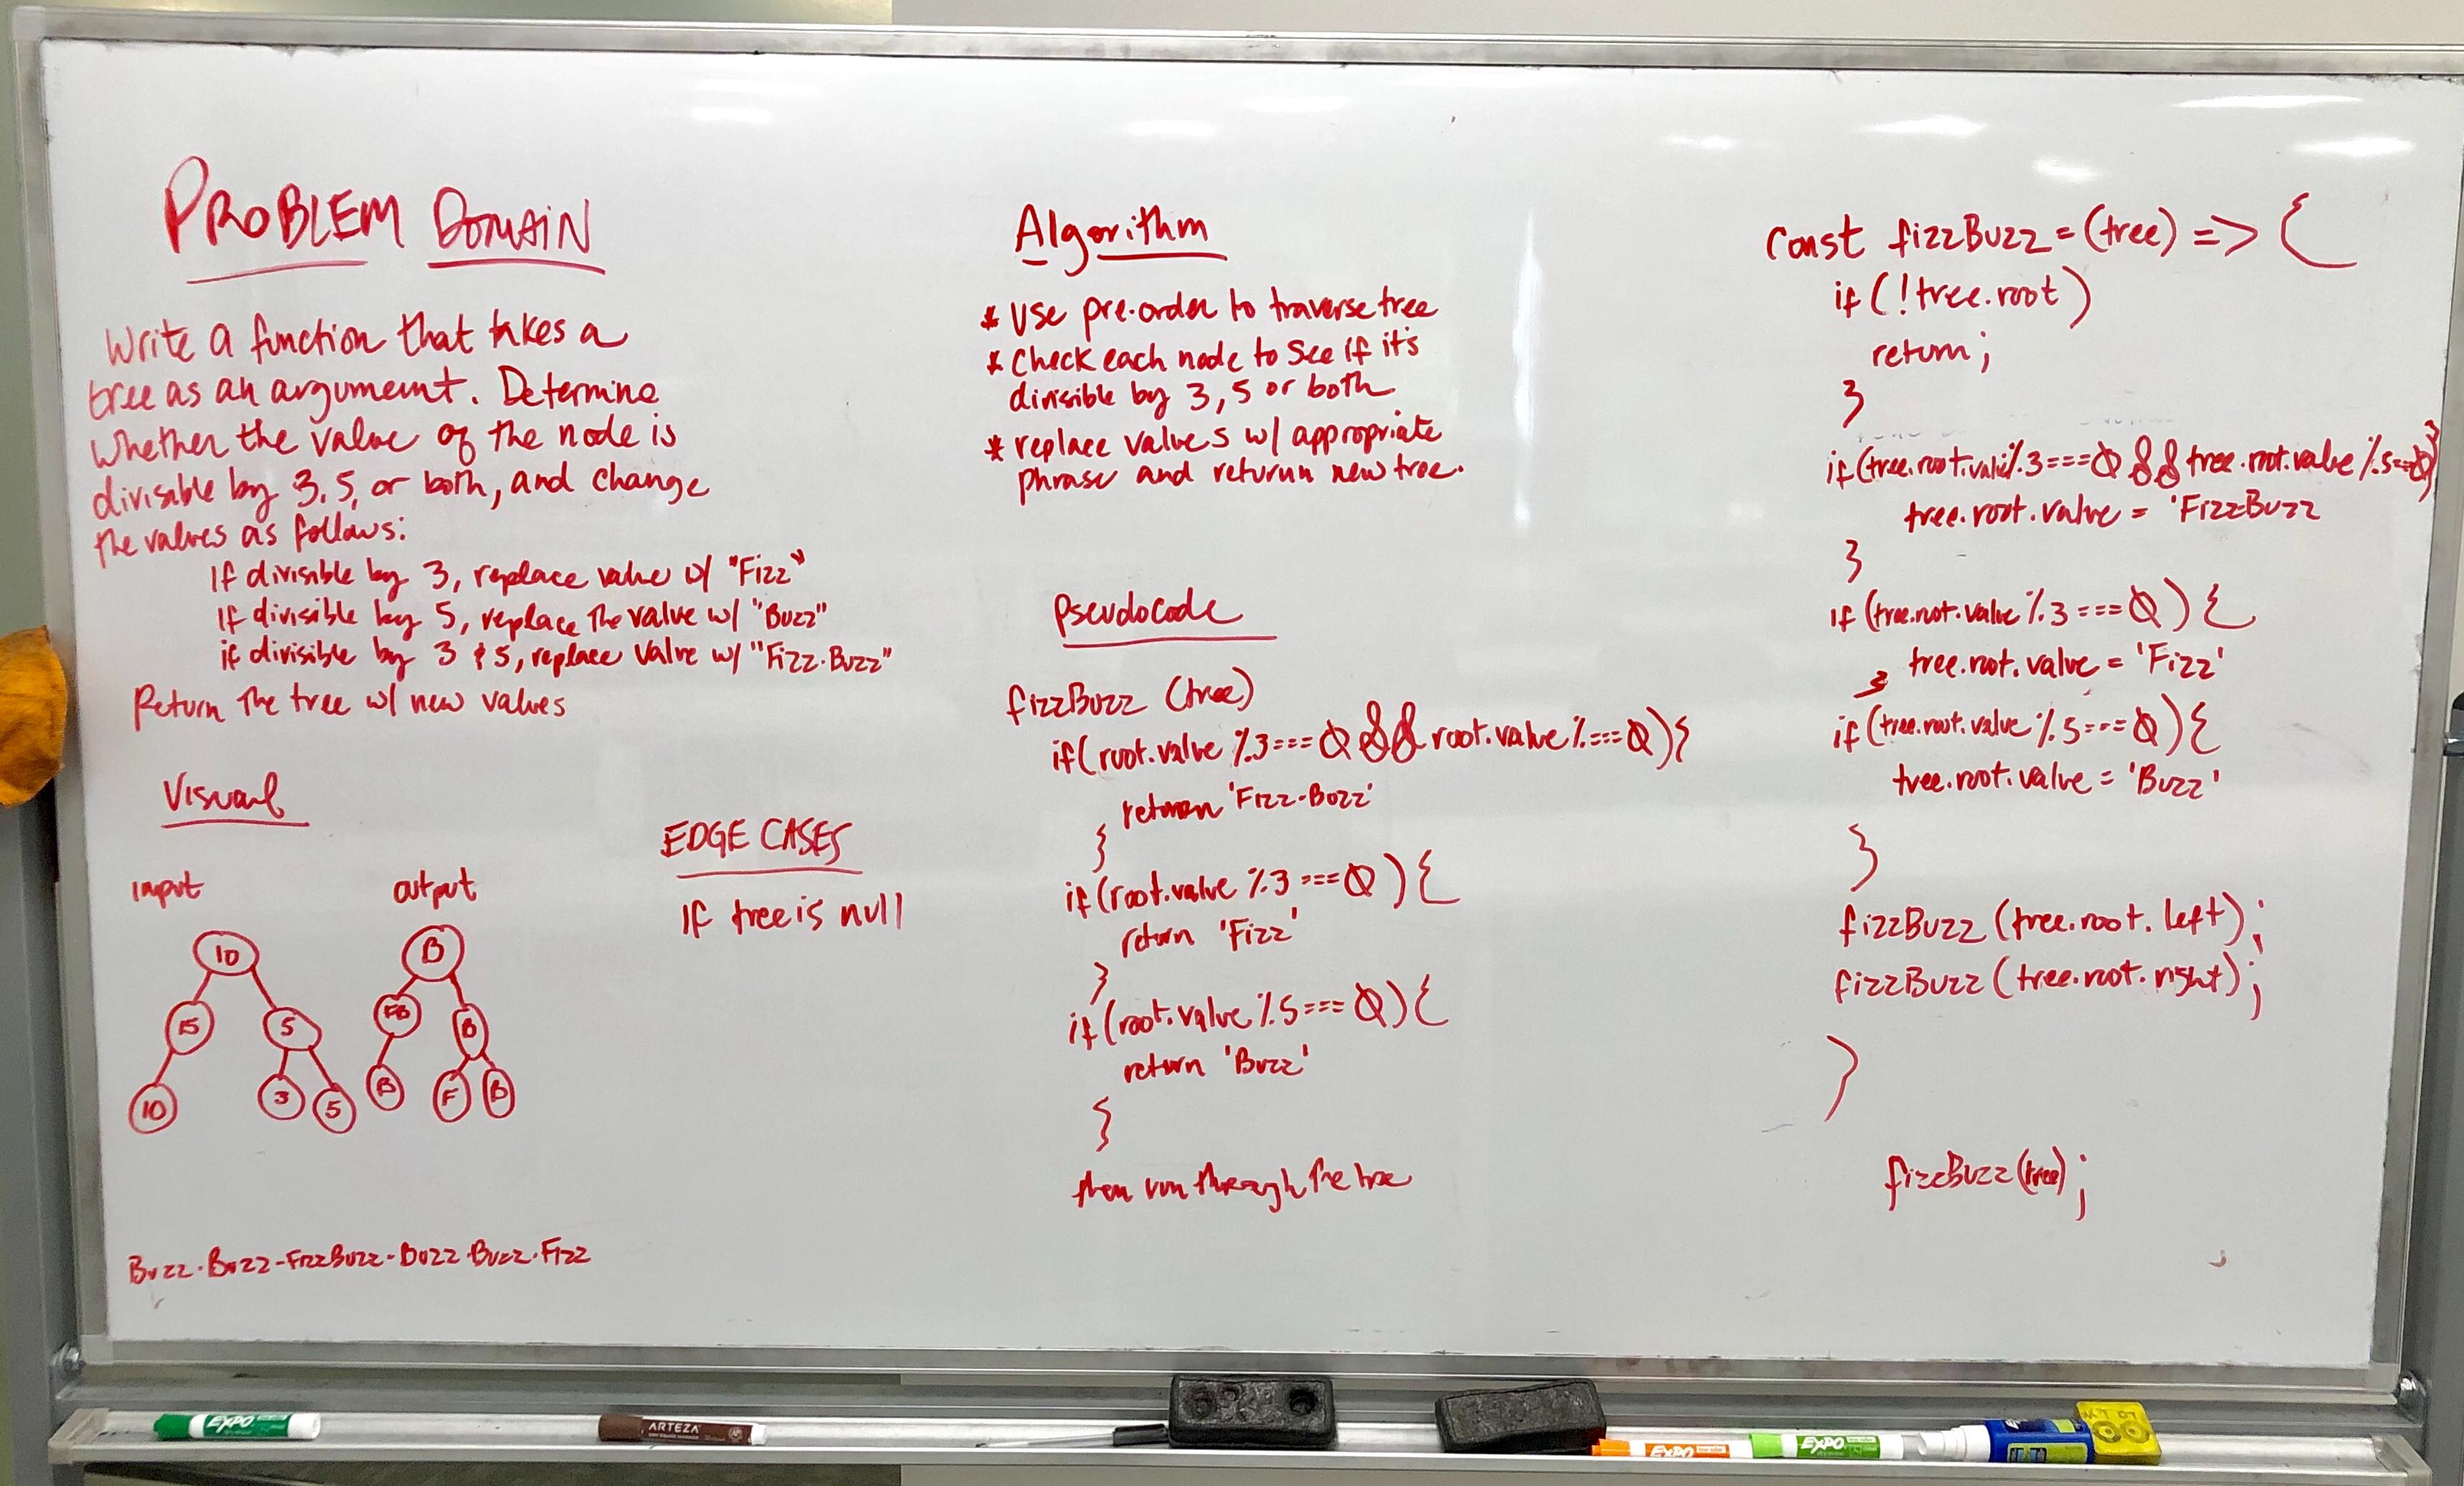 PROBLEM DOMAIN
Write a function that takes a
tree as an argument. Determine
whether the value of the node is
divisable by 3, 5, or both, and change
the values as follows:
If divisible by 3, replace value w/ "Fizz"
If divisible by 5, replace the value w/ "Buzz"
if divisible by 3 & 5, replace value w/ "Fizz-Buzz"
Return the tree w/ new values
Visual
input
output
10
15
5
10
3
5
B
FB
B
B
F
B
Buzz-Buzz-FizzBuzz-Buzz-Buzz-Fizz
EDGE CASES
If tree is null
Algorithm
* Use pre-order to traverse tree
* Check each node to see if it's
divisible by 3, 5 or both
* replace values w/ appropriate
phrase and return new tree.
Pseudocode
fizzBuzz (tree)
if (root.value % 3 === 0 && root.value % === 0) {
return 'Fizz-Buzz'
}
if (root.value % 3 === 0) {
return 'Fizz'
}
if (root.value % 5 === 0) {
return 'Buzz'
}
then run through the tree
const fizzBuzz = (tree) => {
if (!tree.root)
return;
}
if (tree.root.value % 3 === 0 && tree.root.value % 5 === 0) {
tree.root.value = 'FizzBuzz
}
if (tree.root.value % 3 === 0) {
tree.root.value = 'Fizz'
}
if (tree.root.value % 5 === 0) {
tree.root.value = 'Buzz'
}
fizzBuzz (tree.root.left);
fizzBuzz (tree.root.right);
}
fizzBuzz (tree);
EXPO
ARTEZA
EXPO
EXPO